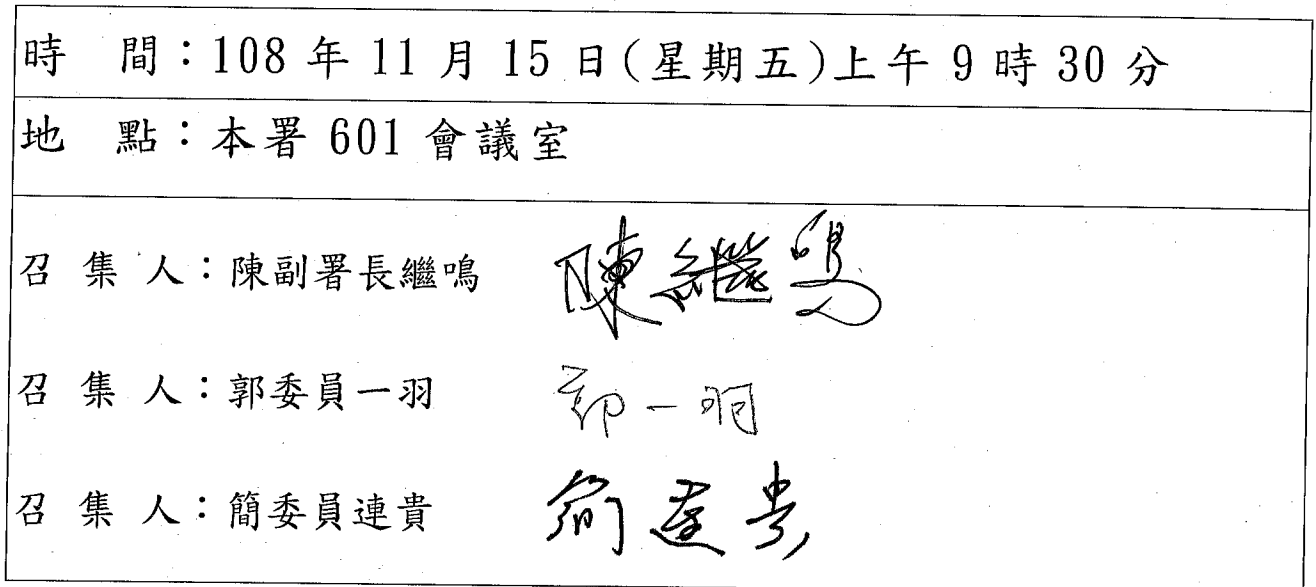 時　間：108 年 11 月 15 日(星期五)上午 9 時 30 分
地　點：本署 601 會議室
召 集 人：陳副署長繼鳴　陳繼鳴
召 集 人：郭委員一羽　郭一羽
召 集 人：簡委員連貴　簡連貴